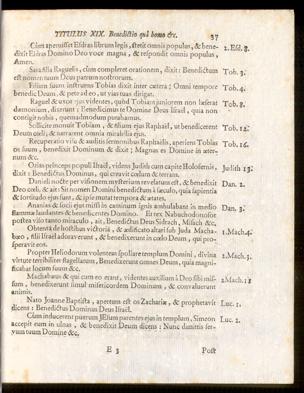 TITULUS XIX. Benedictio qui homo &c. 37
Cùm aperuisset Esdras librum legis, stetit omnis populus, & bene- 1. Esd. 8.
dixit Esdras Domino Deo voce magna, & respondit omnis populus,
Amen.
Sara filia Raguelis, cùm compleret orationem, dixit: Benedictum Tob. 3.
est nomen tuum Deus patrum nostrorum.
Filium suum instruens Tobias dixit inter cætera; Omni tempore Tob. 4.
benedic Deum, & pete ab eo, ut vias tuas dirigat.
Raguel & uxor ejus videntes, quòd Tobiam juniorem non læserat Tob. 8.
dæmonium, dixerunt: Benedicimus te Domine Deus Israël, quia non
contigit nobis, quemadmodum putabamus.
Sollicitè monuit Tobiam, & filium ejus Raphaël, ut benedicerent Tob. 12.
Deum cœli, & narrarent omnia mirabilia ejus.
Recuperato visu & auditis sermonibus Raphaëlis, aperiens Tobias Tob. 16.
os suum, benedixit Dominum & dixit; Magnus es Domine in æter-
num &c.
Ozias princeps populi Israël, videns Judith cum capite Holofernis, Judith 13.
dixit: Benedictus Dominus, qui creavit cœlum & terram.
Danieli nocte per visionem mysterium revelatum est, & benedixit Dan. 2.
Deo cœli, & ait: Sit nomen Domini benedictum à sæculo, quia sapientia
& fortitudo ejus sunt, & ipse mutat tempora & ætates.
Ananias & socii ejus missi in caminum ignis ambulabant in medio Dan. 3.
flammæ laudantes & benedicentes Domino. Et rex Nabuchodonosor
postea viso tanto miraculo, ait, Benedictus Deus Sidrach, Misach &c.
Obtentâ de hostibus victoriâ, & ædificato altari sub Juda Macha- 1. Mach. 4.
bæo, filii Israël adoraverunt, & benedixerunt in cœlo Deum, qui pro-
speravit eos.
Propter Heliodorum volentem spoliare templum Domini, divina 2. Mach. 3.
virtute terribiliter flagellatum, Benedixerunt omnes Deum, quia magni-
ficabat locum suum &c.
Machabæus & qui cum eo erant, videntes auxilium à Deo sibi mis- 2. Mach. 11
sum, benedixerunt simul misericordem Dominum, & convaluerunt
animis.
Nato Joanne Baptista, apertum est os Zachariæ, & prophetavit Luc. 1.
dicens: Benedictus Dominus Deus Israël.
Cùm inducerent puerum JEsum parentes ejus in templum, Simeon Luc. 2.
accepit eum in ulnas, & benedixit Deum dicens: Nunc dimittis ser-
vum tuum Domine &c.
E 3 Post